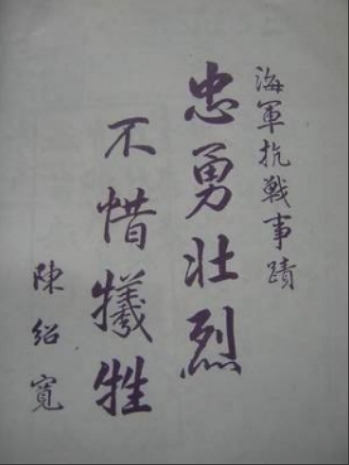 海軍抗戰事蹟
忠勇壯烈
不惜犧牲
陳紹寬